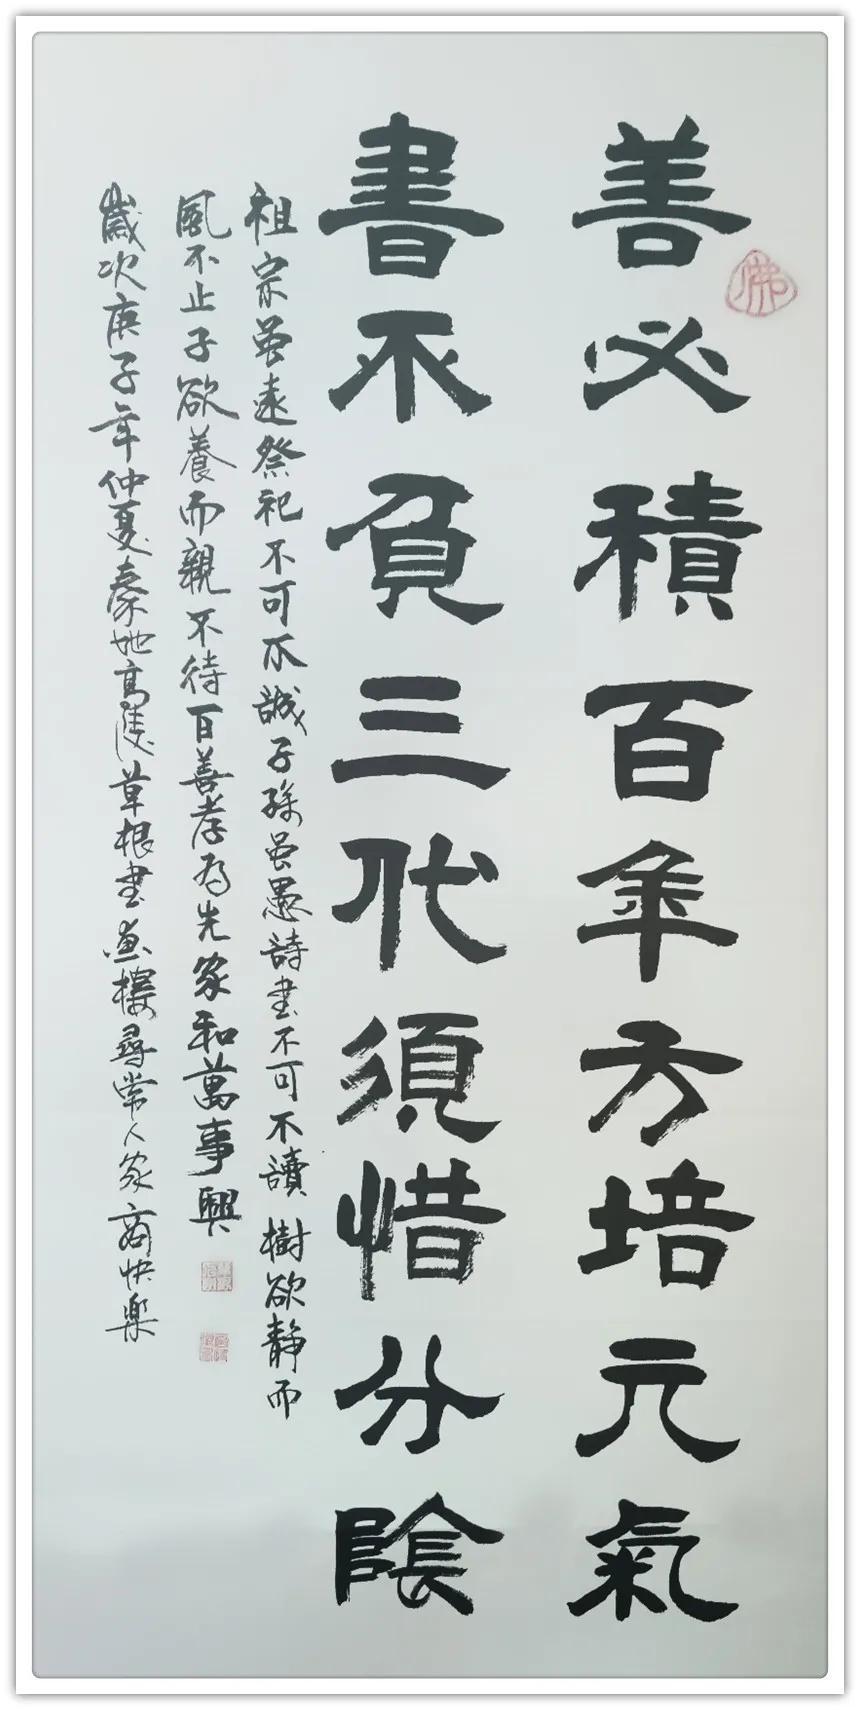 善必積百年方培元氣
書不負三代須惜分陰
祖宗虽遠祭祀不可不誠子孫虽愚詩書不可不讀樹欲靜而
風不止子欲養而親不待百善孝为先家和萬事興
歲次庚子年仲夏秦地高陵草根書画樓尋常人家商快樂
佛